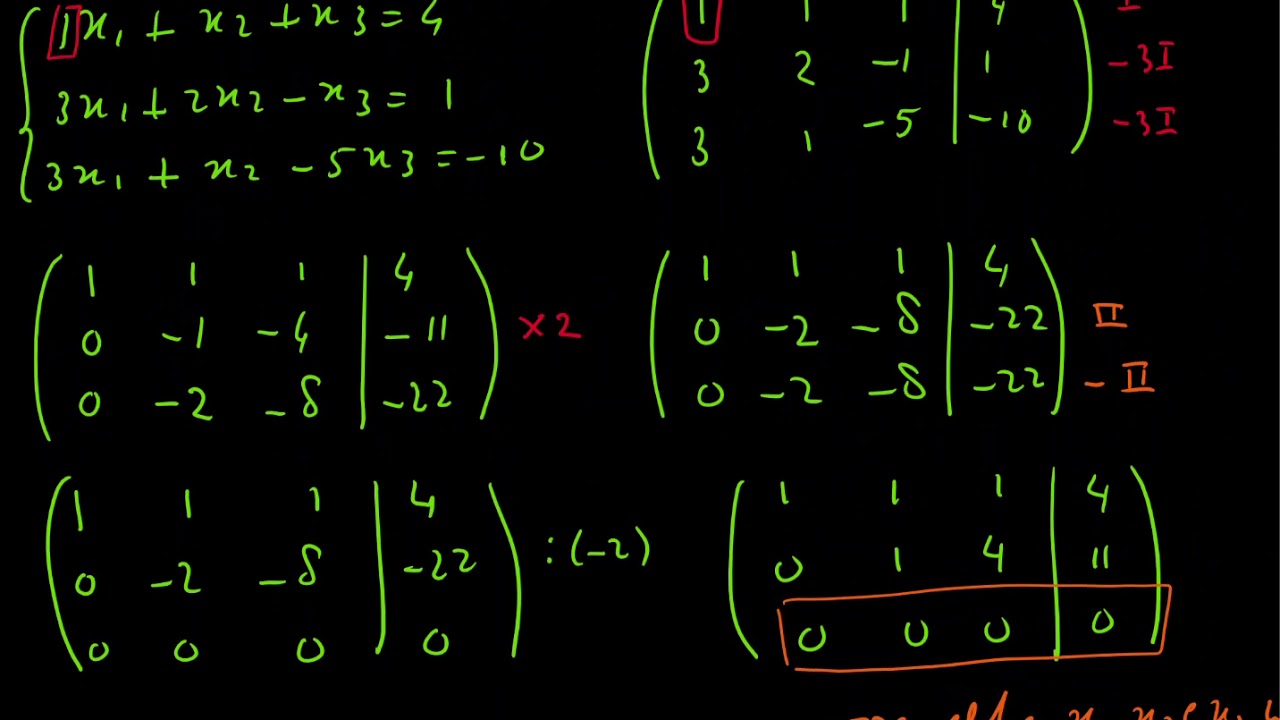 1x₁ + x₂ + x₃ = 4
3x₁ + 2x₂ - x₃ = 1
3x₁ + x₂ - 5x₃ = -10
1 1 1 | 4 I
3 2 -1 | 1 -3I
3 1 -5 | -10 -3I
1 1 1 | 4
0 -1 -4 | -11 ×2
0 -2 -8 | -22
1 1 1 | 4
0 -2 -8 | -22 II
0 -2 -8 | -22 -II
1 1 1 | 4
0 -2 -8 | -22 :(-2)
0 0 0 | 0
1 1 1 | 4
0 1 4 | 11
0 0 0 | 0